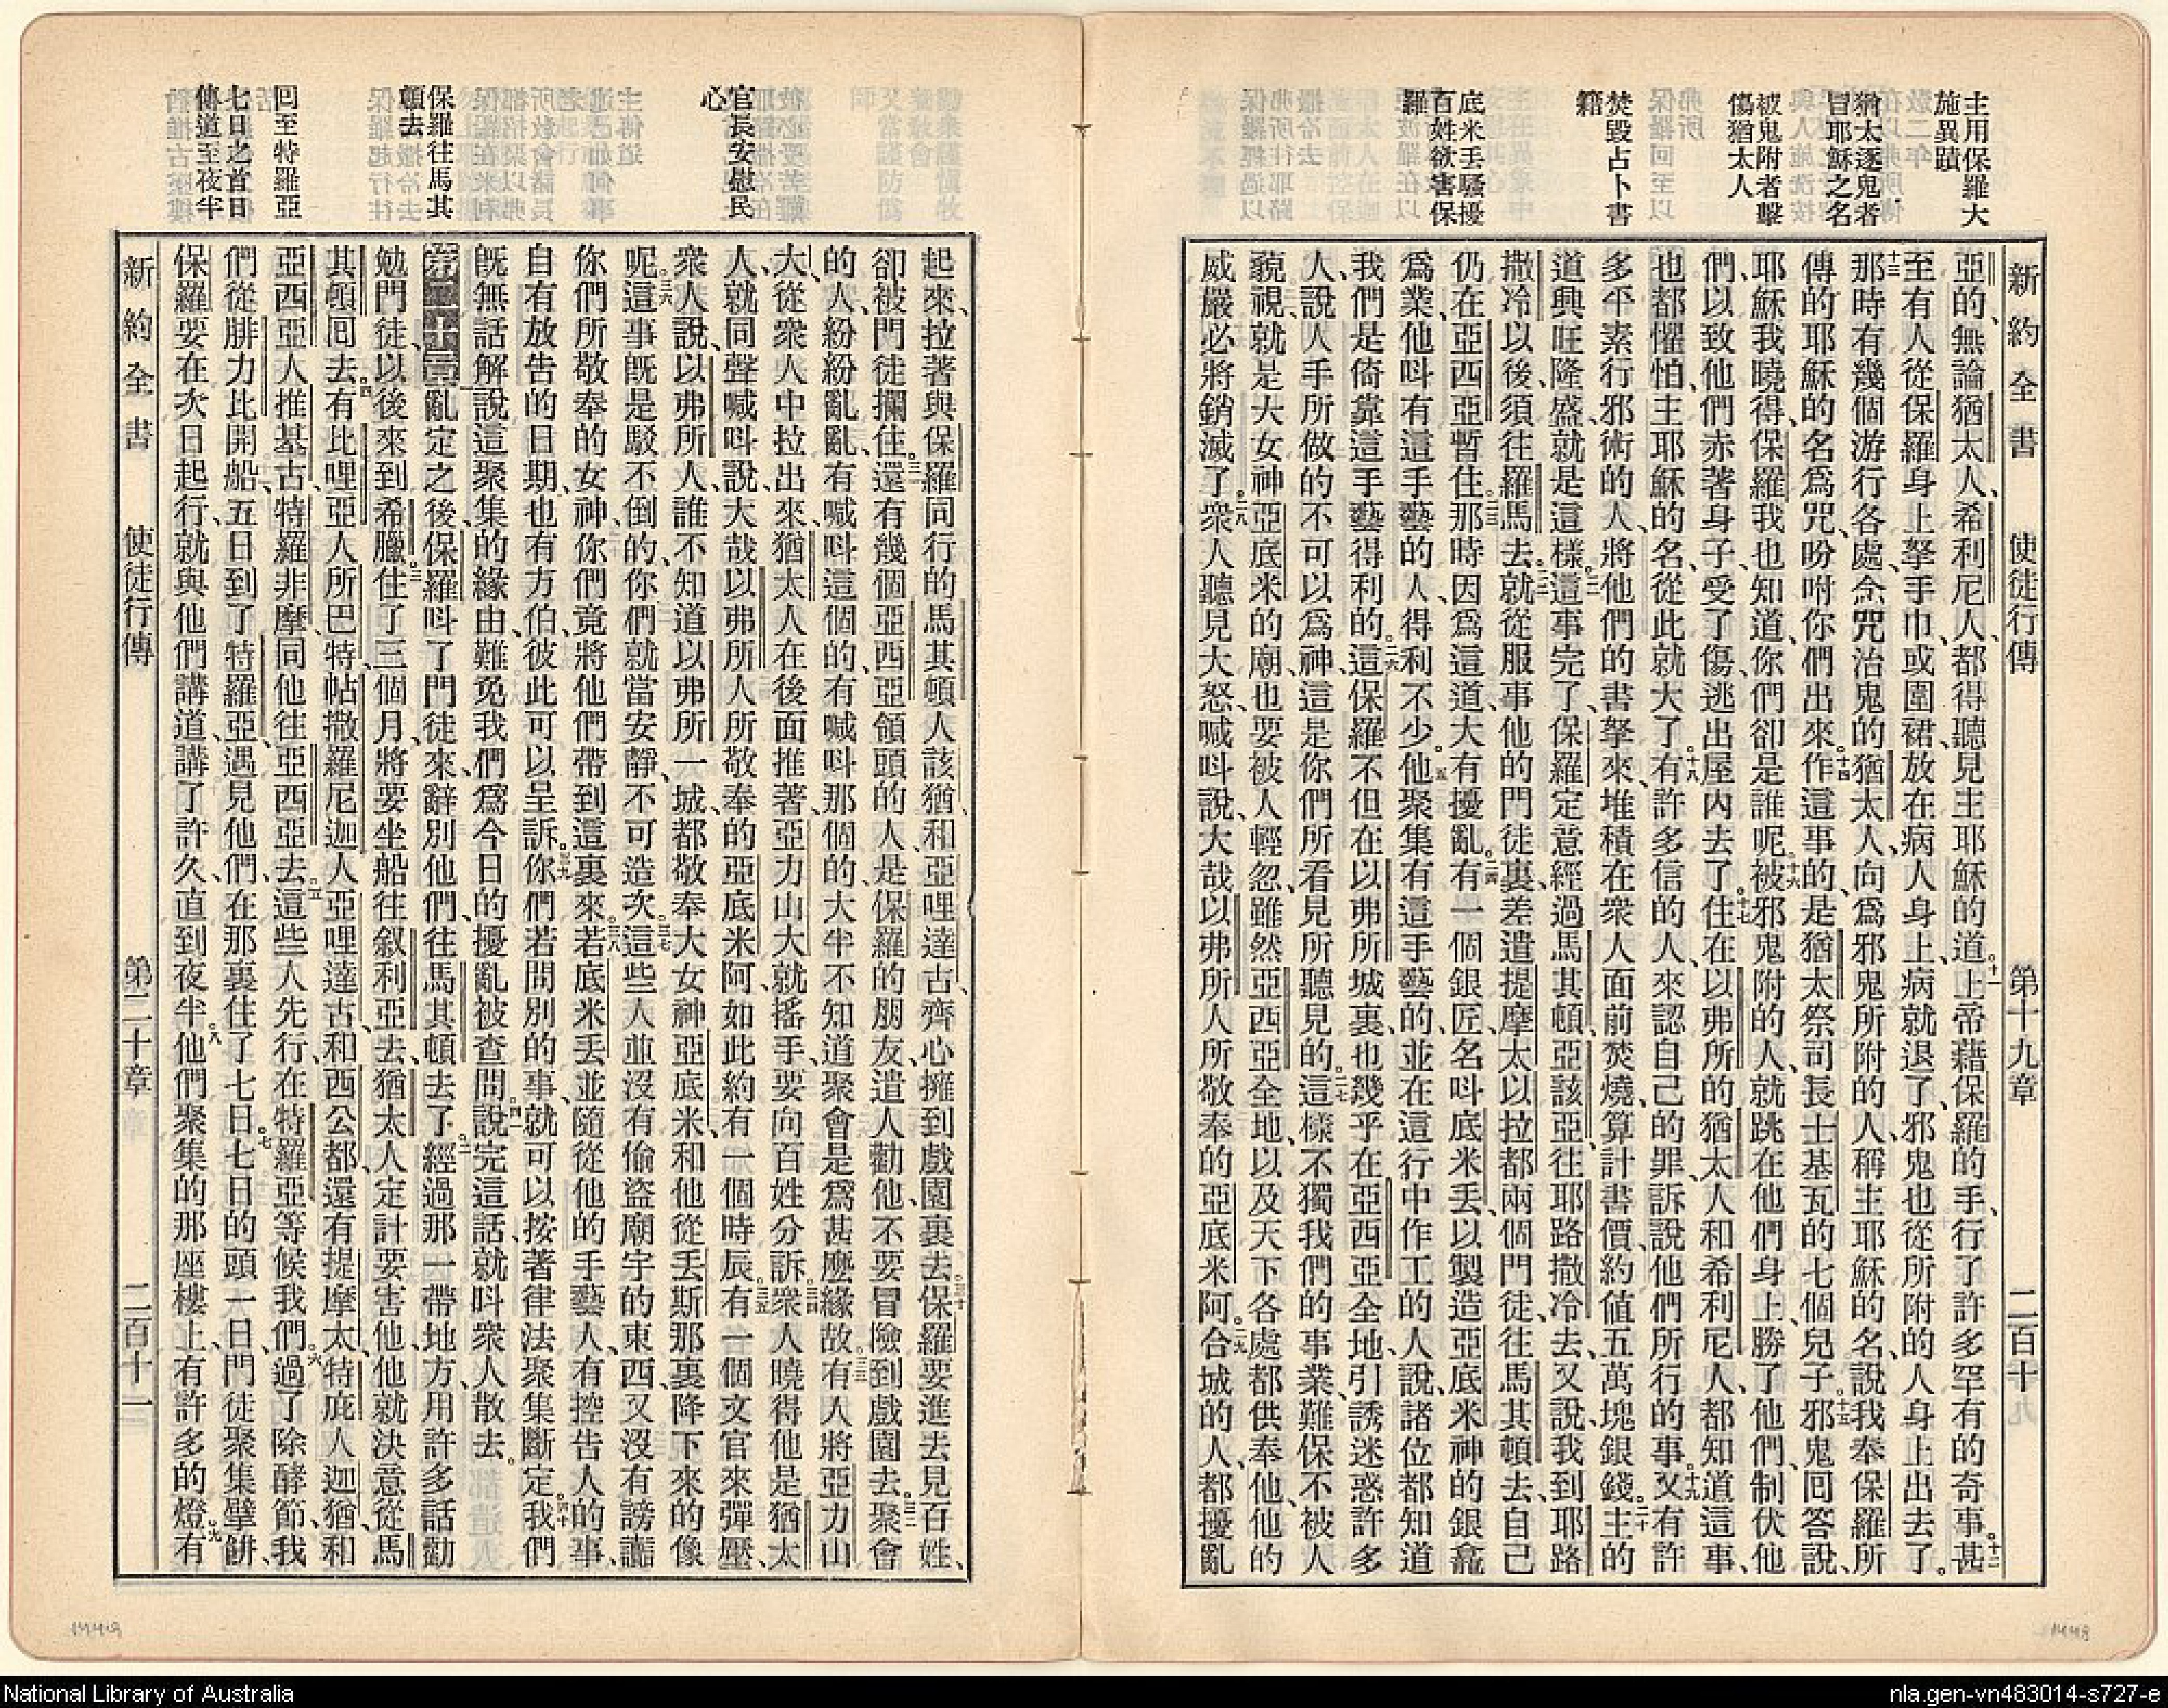 主用保羅大
施異蹟
猶太逐鬼者
冒耶穌之名
被鬼附者擊
傷猶太人
焚毀占卜書
籍
底米丟騷擾
百姓欲害保
羅
新約全書 使徒行傳 第十九章 二百十
亞的、無論猶太人、希利尼人、都得聽見主耶穌的道。十一上帝藉保羅的手、行了許多罕有的奇事。十二甚
至有人從保羅身上拏手巾、或圍裙、放在病人身上、病就退了、邪鬼也從所附的人身上出去了。
十三那時有幾個游行各處、念咒治鬼的猶太人、向爲邪鬼所附的人、稱主耶穌的名、說我奉保羅所
傳的耶穌的名爲咒、吩咐你們出來。十四作這事的、是猶太祭司長士基瓦的七個兒子。十五邪鬼回答說、
耶穌我曉得、保羅我也知道、你們卻是誰呢。十六被邪鬼附的人、就跳在他們身上、勝了他們、制伏他
們、以致他們赤著身子、受了傷、逃出屋內去了。十七住在以弗所的猶太人和希利尼人、都知道這事、
也都懼怕、主耶穌的名、從此就大了。十八有許多信的人、來認自己的罪、訴說他們所行的事。十九又有許
多平素行邪術的人、將他們的書拏來、堆積在衆人面前焚燒、算計書價、約值五萬塊銀錢。二十主的
道興旺隆盛、就是這樣。二一這事完了、保羅定意經過馬其頓、亞該亞、往耶路撒冷去、又說、我到耶路
撒冷以後、須往羅馬去。二二就從服事他的門徒裏、差遣提摩太以拉都兩個門徒、往馬其頓去、自己
仍在亞西亞暫住。二三那時因爲這道、大有擾亂。二四有一個銀匠、名呌底米丟、以製造亞底米神的銀龕
爲業、他呌有這手藝的人、得利不少。二五他聚集有這手藝的、並在這行中作工的人、說、諸位都知道
我們是倚靠這手藝得利的。二六這保羅不但在以弗所城裏、也幾乎在亞西亞全地、引誘迷惑許多
人、說人手所做的、不可以爲神、這是你們所看見所聽見的。二七這樣、不獨我們的事業、難保不被人
藐視、就是大女神亞底米的廟、也要被人輕忽、雖然亞西亞全地、以及天下各處都供奉他、他的
威嚴必將銷滅了。二八衆人聽見大怒、喊呌說、大哉以弗所人所敬奉的亞底米阿。二九合城的人、都擾亂
官長安慰民
心
保羅往馬其
頓去
回至特羅亞
七日之首日
傳道至夜半
起來、拉著與保羅同行的馬其頓人該猶和亞哩達古、齊心擁到戲園裏去。三十保羅要進去見百姓、
卻被門徒攔住。三一還有幾個亞西亞領頭的人、是保羅的朋友、遣人勸他、不要冒險到戲園去。三二聚會
的人、紛紛亂亂、有喊呌這個的、有喊呌那個的、大半不知道聚會是爲甚麼緣故。三三有人將亞力山
大、從衆人中拉出來、猶太人在後面推著、亞力山大就搖手、要向百姓分訴。三四衆人曉得他是猶太
人、就同聲喊呌說、大哉以弗所人所敬奉的亞底米阿、如此約有一個時辰。三五有一個文官來彈壓
衆人說、以弗所人、誰不知道以弗所一城、都敬奉大女神亞底米、和他從丟斯那裏降下來的像
呢。三六這事既是駁不倒的、你們就當安靜、不可造次。三七這些人並沒有偷盜廟宇的東西、又沒有謗讟
你們所敬奉的女神、你們竟將他們帶到這裏來。三八若底米丟並隨從他的手藝人、有控告人的事、
自有放告的日期、也有方伯、彼此可以呈訴。三九你們若問別的事、就可以按著律法聚集斷定。四十我們
既無話解說這聚集的緣由、難免我們爲今日的擾亂被查問。四一說完這話、就呌衆人散去。
第二十章亂定之後、保羅呌了門徒來、辭別他們、往馬其頓去了。二經過那一帶地方、用許多話勸
勉門徒、以後來到希臘。三住了三個月、將要坐船往叙利亞去、猶太人定計要害他、他就決意從馬
其頓回去。四有比哩亞人所巴特、帖撒羅尼迦人亞哩達古、和西公都、還有提摩太、特庇人迦猶、和
亞西亞人推基古、特羅非摩、同他往亞西亞去。五這些人先行、在特羅亞等候我們。六過了除酵節、我
們從腓力比開船、五日到了特羅亞、遇見他們、在那裏住了七日。七七日的頭一日、門徒聚集擘餅、
保羅要在次日起行、就與他們講道、講了許久、直到夜半。八他們聚集的那座樓上、有許多的燈。九有
新約全書 使徒行傳 第二十章 二百十一
National Library of Australia
nla.gen-vn483014-s727-e